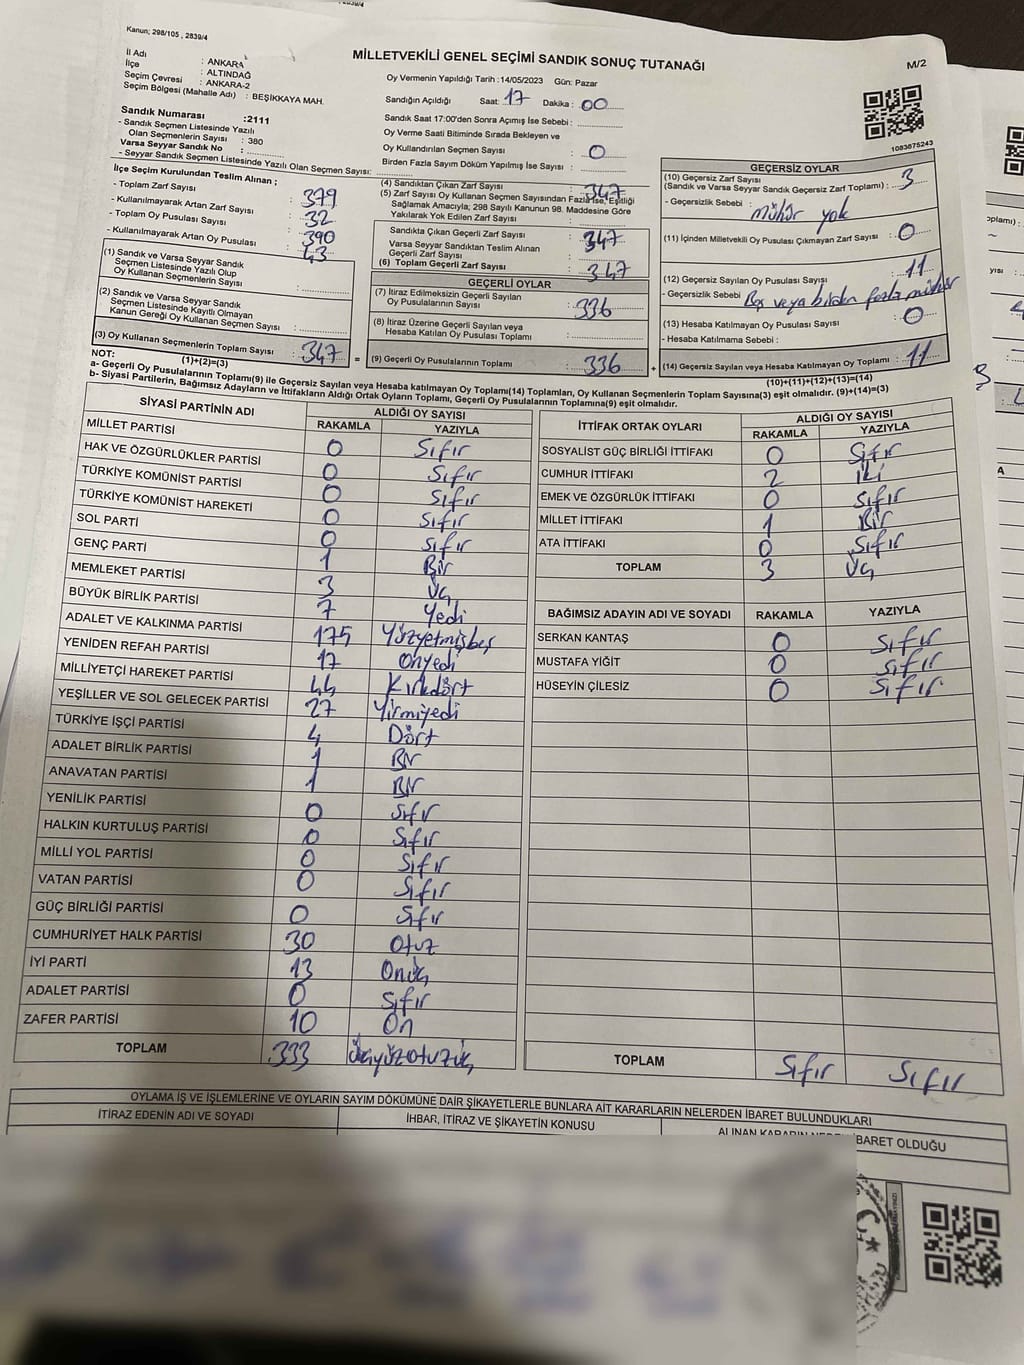 2839/4
Kanun; 298/105 , 2839/4
MİLLETVEKİLİ GENEL SEÇİMİ SANDIK SONUÇ TUTANAĞI
M/2
İl Adı : ANKARA
İlçe : ALTINDAĞ
Seçim Çevresi : ANKARA-2
Seçim Bölgesi (Mahalle Adı) : BEŞİKKAYA MAH.
Sandık Numarası :2111
- Sandık Seçmen Listesinde Yazılı
Olan Seçmenlerin Sayısı : 380
Varsa Seyyar Sandık No :
- Seyyar Sandık Seçmen Listesinde Yazılı Olan Seçmen Sayısı:
Oy Vermenin Yapıldığı Tarih :14/05/2023 Gün: Pazar
Sandığın Açıldığı Saat: 17 Dakika : 00
Sandık Saat 17:00'den Sonra Açımış İse Sebebi :
Oy Verme Saati Bitiminde Sırada Bekleyen ve
Oy Kullandırılan Seçmen Sayısı : 0
Birden Fazla Sayım Döküm Yapılmış İse Sayısı :
1083875243
İlçe Seçim Kurulundan Teslim Alınan ;
- Toplam Zarf Sayısı : 379
- Kullanılmayarak Artan Zarf Sayısı : 32
- Toplam Oy Pusulası Sayısı : 390
- Kullanılmayarak Artan Oy Pusulası : 43
(1) Sandık ve Varsa Seyyar Sandık
Seçmen Listesinde Yazılı Olup
Oy Kullanan Seçmenlerin Sayısı :
(2) Sandık ve Varsa Seyyar Sandık
Seçmen Listesinde Kayıtlı Olmayan
Kanun Gereği Oy Kullanan Seçmen Sayısı :
(3) Oy Kullanan Seçmenlerin Toplam Sayısı : 347 =
(1)+(2)=(3)
(4) Sandıktan Çıkan Zarf Sayısı : 347
(5) Zarf Sayısı Oy Kullanan Seçmen Sayısından Fazla İse, Eşitliği
Sağlamak Amacıyla; 298 Sayılı Kanunun 98. Maddesine Göre
Yakılarak Yok Edilen Zarf Sayısı :
Sandıkta Çıkan Geçerli Zarf Sayısı : 347
Varsa Seyyar Sandıktan Teslim Alınan
Geçerli Zarf Sayısı :
(6) Toplam Geçerli Zarf Sayısı : 347
GEÇERLİ OYLAR
(7) İtiraz Edilmeksizin Geçerli Sayılan
Oy Pusulalarının Sayısı : 336
(8) İtiraz Üzerine Geçerli Sayılan veya
Hesaba Katılan Oy Pusulası Toplamı :
(9) Geçerli Oy Pusulalarının Toplamı : 336 +
GEÇERSİZ OYLAR
(10) Geçersiz Zarf Sayısı
(Sandık ve Varsa Seyyar Sandık Geçersiz Zarf Toplamı) : 3
- Geçersizlik Sebebi : mühür yok
(11) İçinden Milletvekili Oy Pusulası Çıkmayan Zarf Sayısı : 0
(12) Geçersiz Sayılan Oy Pusulası Sayısı : 11
- Geçersizlik Sebebi Boş veya birden fazla mühür
(13) Hesaba Katılmayan Oy Pusulası Sayısı : 0
- Hesaba Katılmama Sebebi :
(14) Geçersiz Sayılan veya Hesaba Katılmayan Oy Toplamı : 11
(10)+(11)+(12)+(13)=(14)
NOT:
a- Geçerli Oy Pusulalarının Toplamı(9) ile Geçersiz Sayılan veya Hesaba katılmayan Oy Toplamı(14) Toplamları, Oy Kullanan Seçmenlerin Toplam Sayısına(3) eşit olmalıdır. (9)+(14)=(3)
b- Siyasi Partilerin, Bağımsız Adayların ve İttifakların Aldığı Ortak Oyların Toplamı, Geçerli Oy Pusulalarının Toplamına(9) eşit olmalıdır.
SİYASİ PARTİNİN ADI ALDIĞI OY SAYISI
RAKAMLA YAZIYLA
MİLLET PARTİSİ 0 Sıfır
HAK VE ÖZGÜRLÜKLER PARTİSİ 0 Sıfır
TÜRKİYE KOMÜNİST PARTİSİ 0 Sıfır
TÜRKİYE KOMÜNİST HAREKETİ 0 Sıfır
SOL PARTİ 0 Sıfır
GENÇ PARTİ 1 Bir
MEMLEKET PARTİSİ 3 Üç
BÜYÜK BİRLİK PARTİSİ 7 Yedi
ADALET VE KALKINMA PARTİSİ 175 Yüzyetmişbeş
YENİDEN REFAH PARTİSİ 17 Onyedi
MİLLİYETÇİ HAREKET PARTİSİ 44 Kırkdört
YEŞİLLER VE SOL GELECEK PARTİSİ 27 Yirmiyedi
TÜRKİYE İŞÇİ PARTİSİ 4 Dört
ADALET BİRLİK PARTİSİ 1 Bir
ANAVATAN PARTİSİ 1 Bir
YENİLİK PARTİSİ 0 Sıfır
HALKIN KURTULUŞ PARTİSİ 0 Sıfır
MİLLİ YOL PARTİSİ 0 Sıfır
VATAN PARTİSİ 0 Sıfır
GÜÇ BİRLİĞİ PARTİSİ 0 Sıfır
CUMHURİYET HALK PARTİSİ 30 Otuz
İYİ PARTİ 13 Onüç
ADALET PARTİSİ 0 Sıfır
ZAFER PARTİSİ 10 On
TOPLAM 333 üçyüzotuzüç
İTTİFAK ORTAK OYLARI ALDIĞI OY SAYISI
RAKAMLA YAZIYLA
SOSYALİST GÜÇ BİRLİĞİ İTTİFAKI 0 Sıfır
CUMHUR İTTİFAKI 2 İki
EMEK VE ÖZGÜRLÜK İTTİFAKI 0 Sıfır
MİLLET İTTİFAKI 1 Bir
ATA İTTİFAKI 0 Sıfır
TOPLAM 3 Üç
BAĞIMSIZ ADAYIN ADI VE SOYADI RAKAMLA YAZIYLA
SERKAN KANTAŞ 0 Sıfır
MUSTAFA YİĞİT 0 Sıfır
HÜSEYİN ÇİLESİZ 0 Sıfır
TOPLAM Sıfır Sıfır
OYLAMA İŞ VE İŞLEMLERİNE VE OYLARIN SAYIM DÖKÜMÜNE DAİR ŞİKAYETLERLE BUNLARA AİT KARARLARIN NELERDEN İBARET BULUNDUKLARI
İTİRAZ EDENİN ADI VE SOYADI İHBAR, İTİRAZ VE ŞİKAYETİN KONUSU ALINAN KARARIN NEDEN İBARET OLDUĞU